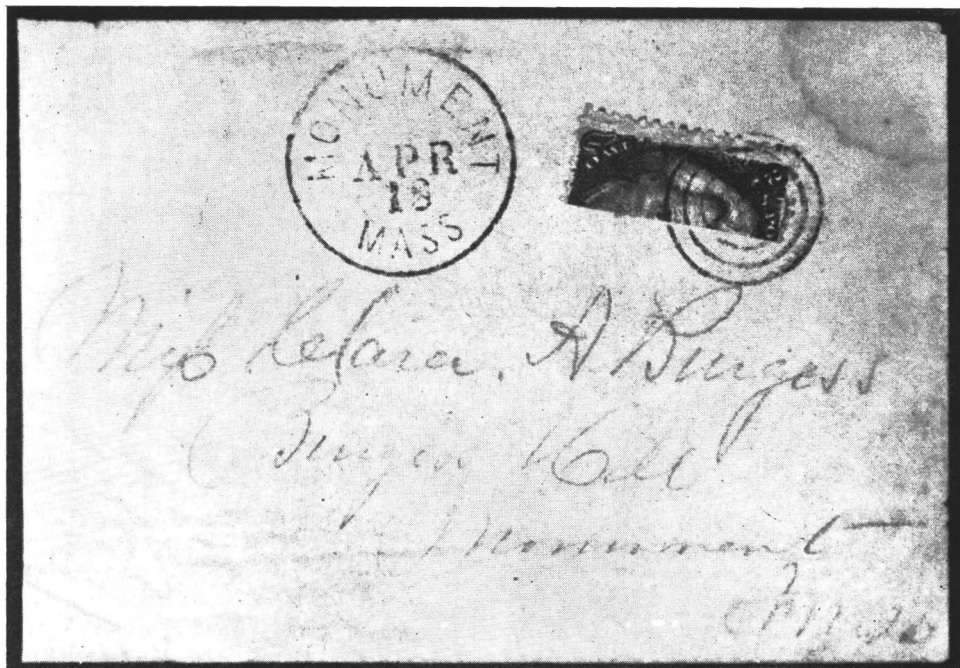 MONUMENT
APR
18
MASS
Miss Clara. A Burgess
Burgess Hill
Monument
Mass